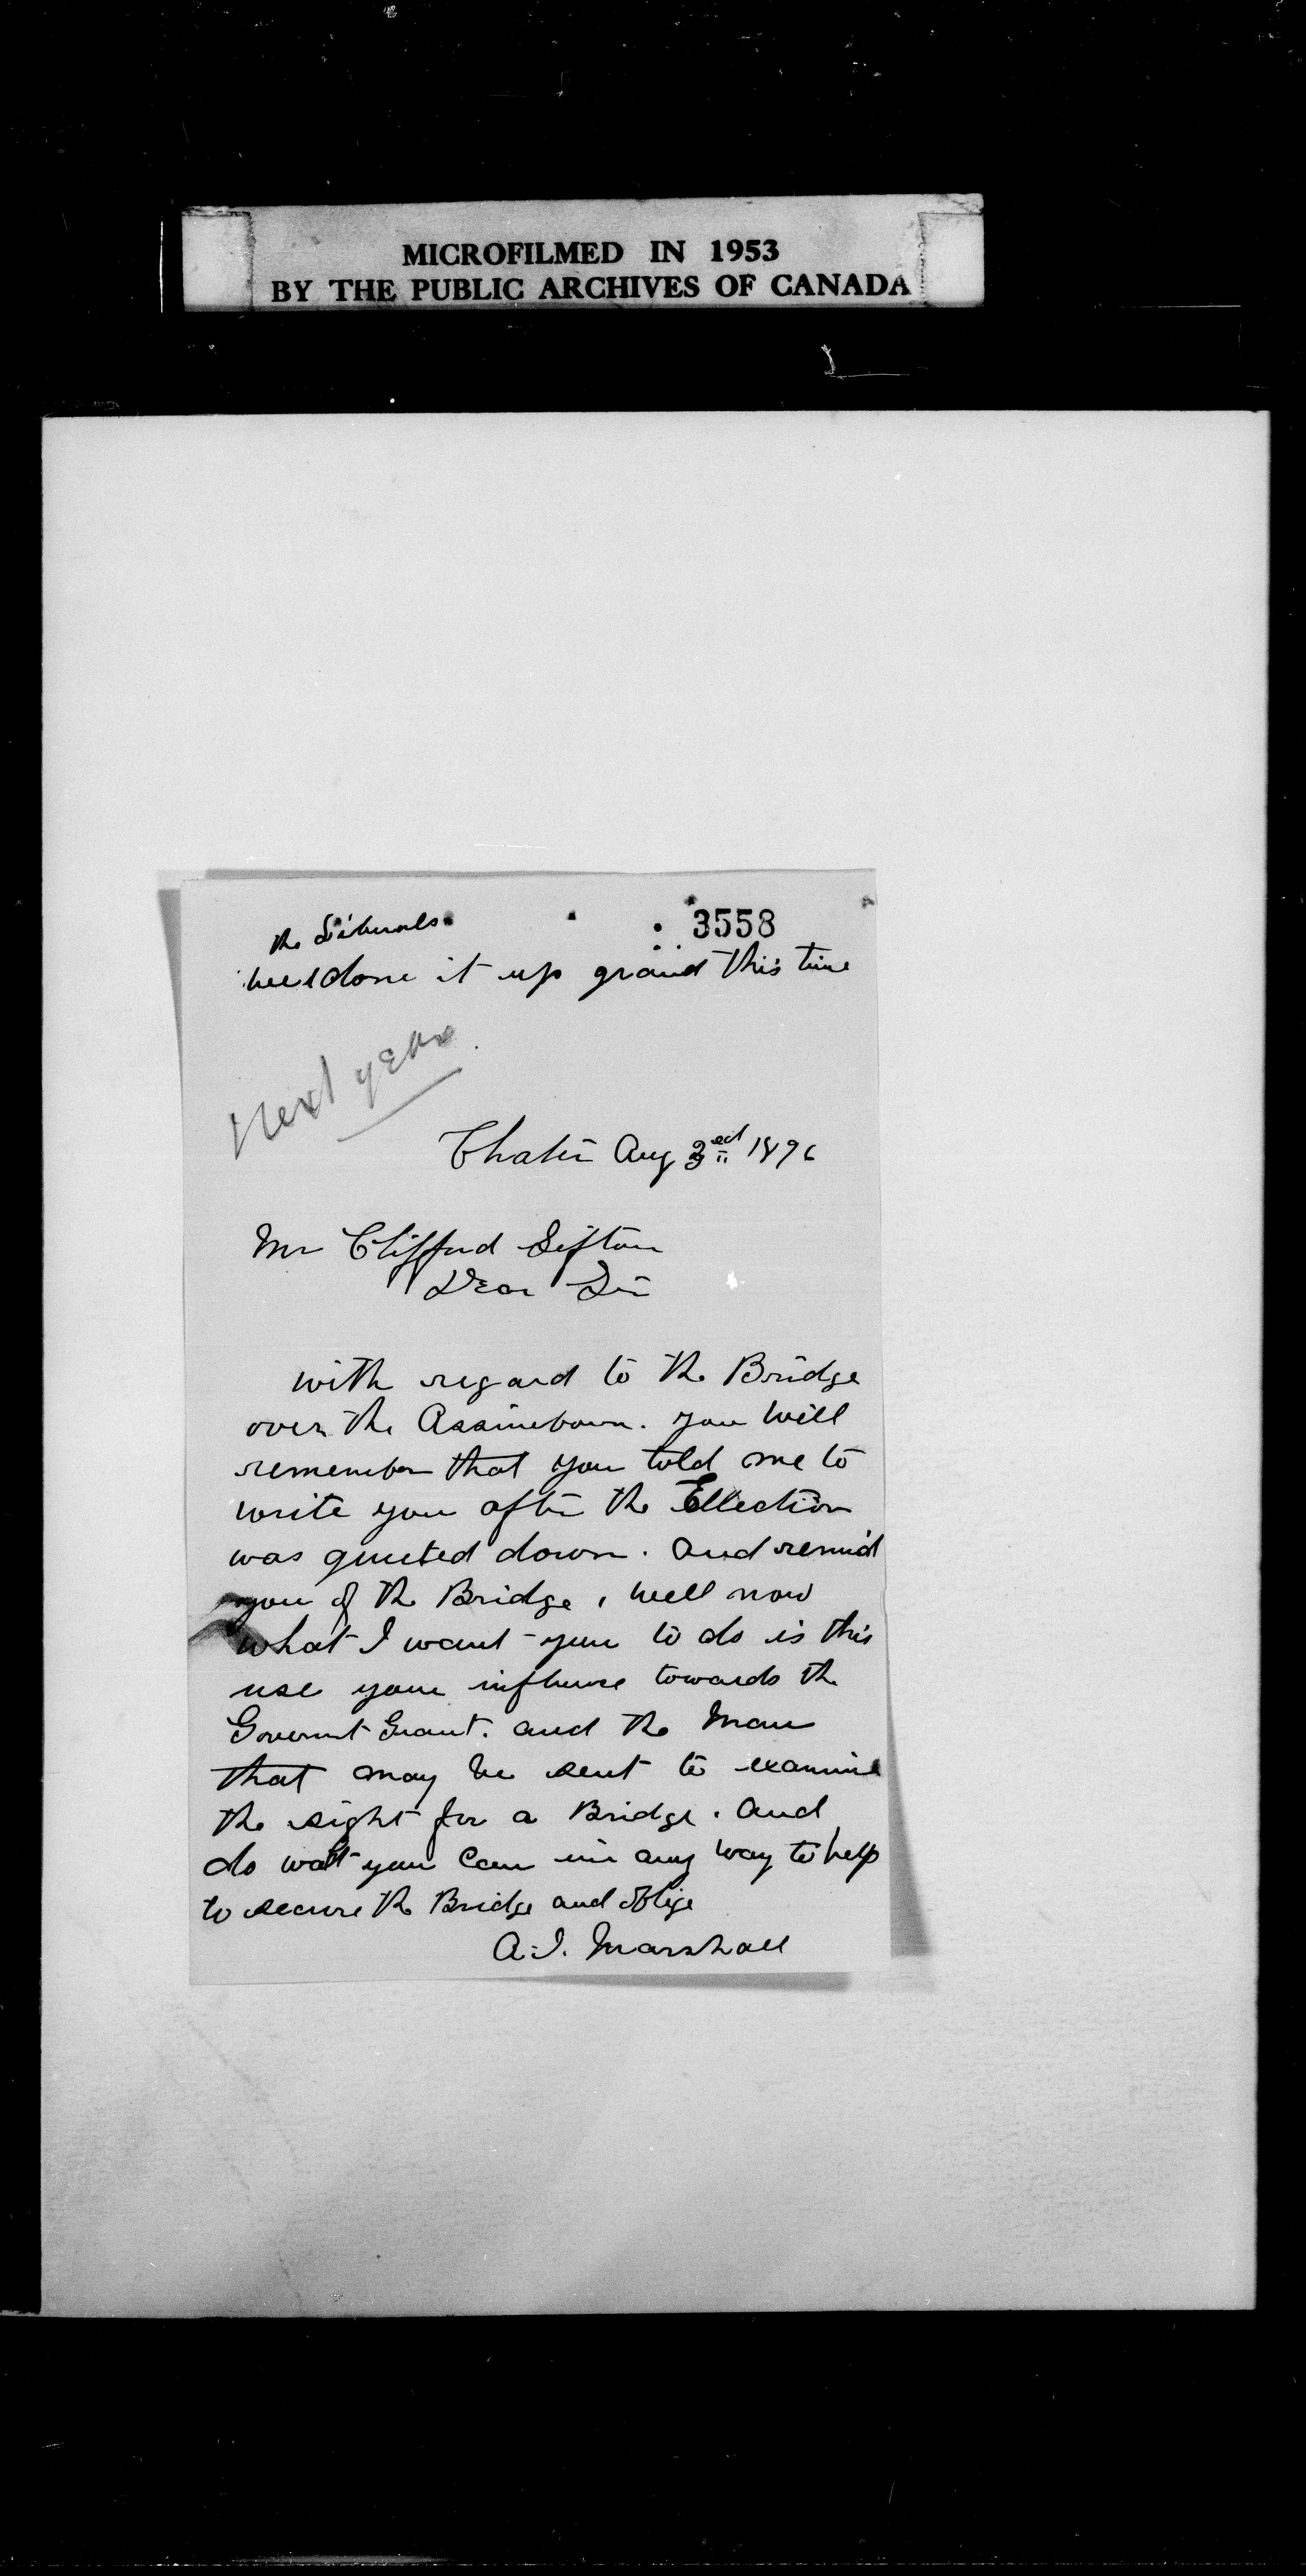 MICROFILMED IN 1953
BY THE PUBLIC ARCHIVES OF CANADA
3558
the Liberals
done it up grand this time
Next year
Chater Aug 3ed 1896
Mr Clifford Sifton
Dear Sir
with regard to the Bridge
over the Assinebown. you will
remember that you told me to
write you after the Ellection
was quieted down. and remind
you of the Bridge, well now
what I want you to do is this
use your influnce towards the
Goverment Grant. and the Man
that may be sent to examine
the sight for a Bridge. and
do wat you Can in any way to help
to secure the Bridge and oblige
A.J. Marshall